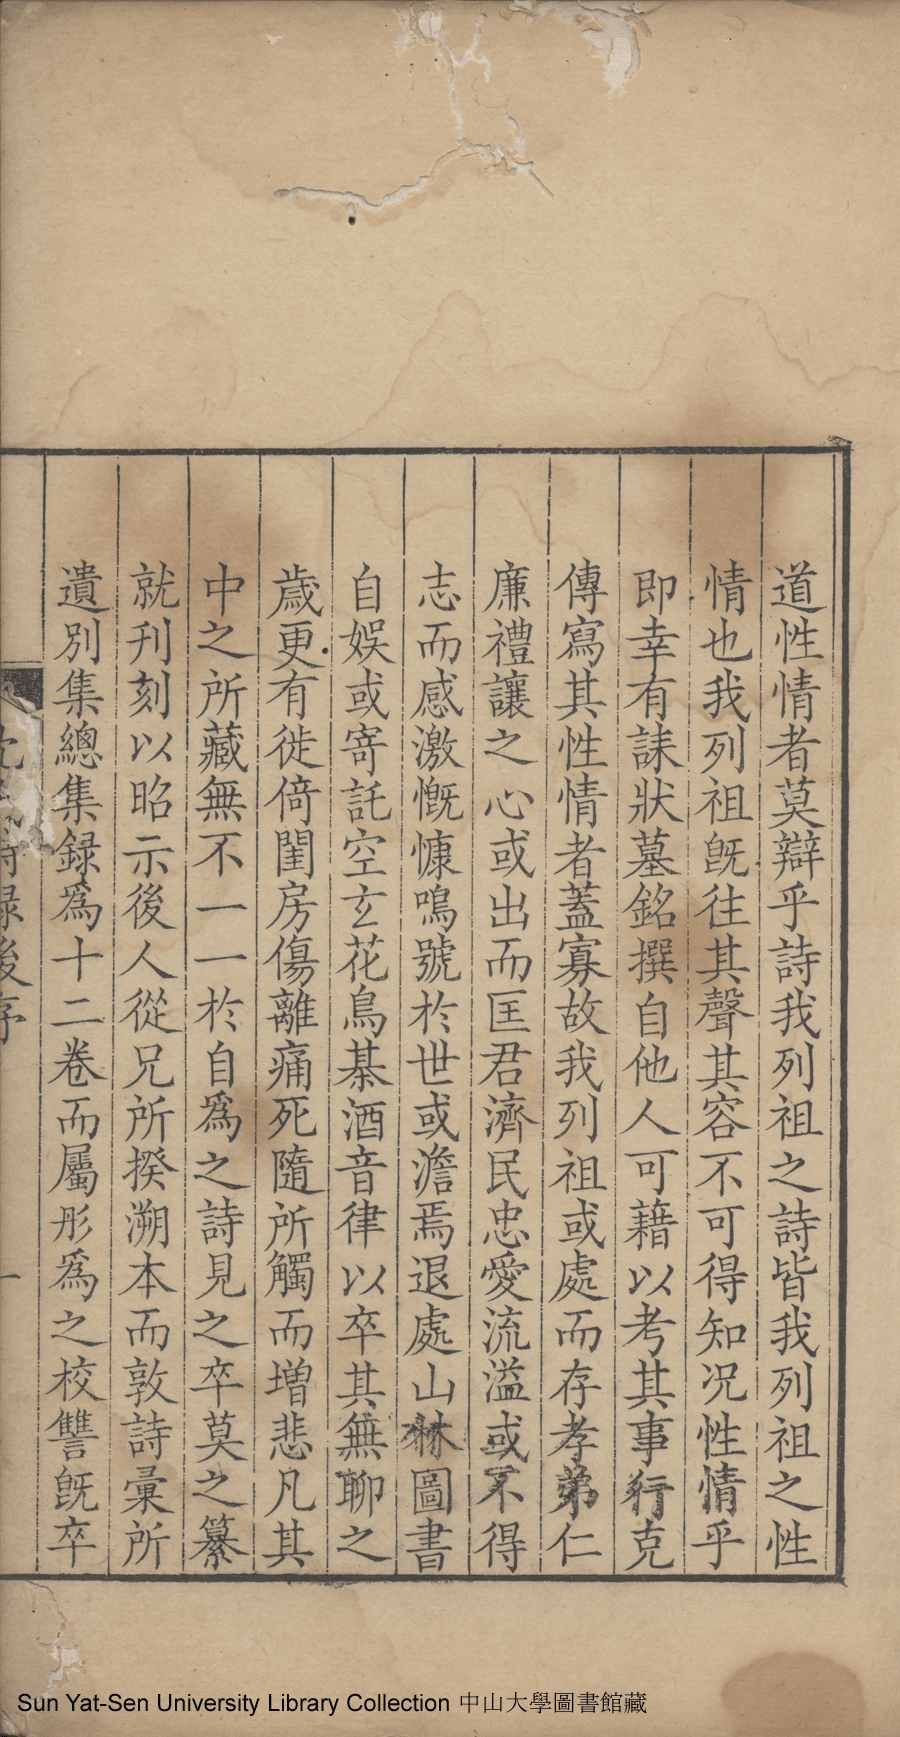 道性情者莫辯乎詩我列祖之詩皆我列祖之性
情也我列祖旣往其聲其容不可得知况性情乎
即幸有誄狀墓銘撰自他人可藉以考其事行克
傳寫其性情者蓋寡故我列祖或處而存孝弟仁
廉禮讓之心或出而匡君濟民忠愛流溢或不得
志而感激慨慷鳴號於世或澹焉退處山林圖書
自娛或寄託空玄花鳥棊酒音律以卒其無聊之
歲更有徙倚閨房傷離痛死隨所觸而增悲凡其
中之所藏無不一一於自爲之詩見之卒莫之纂
就刊刻以昭示後人從兄所揆溯本而敦詩彙所
遺別集總集録爲十二卷而屬彤爲之校讐旣卒
詩録後序
一
Sun Yat-Sen University Library Collection 中山大學圖書館藏